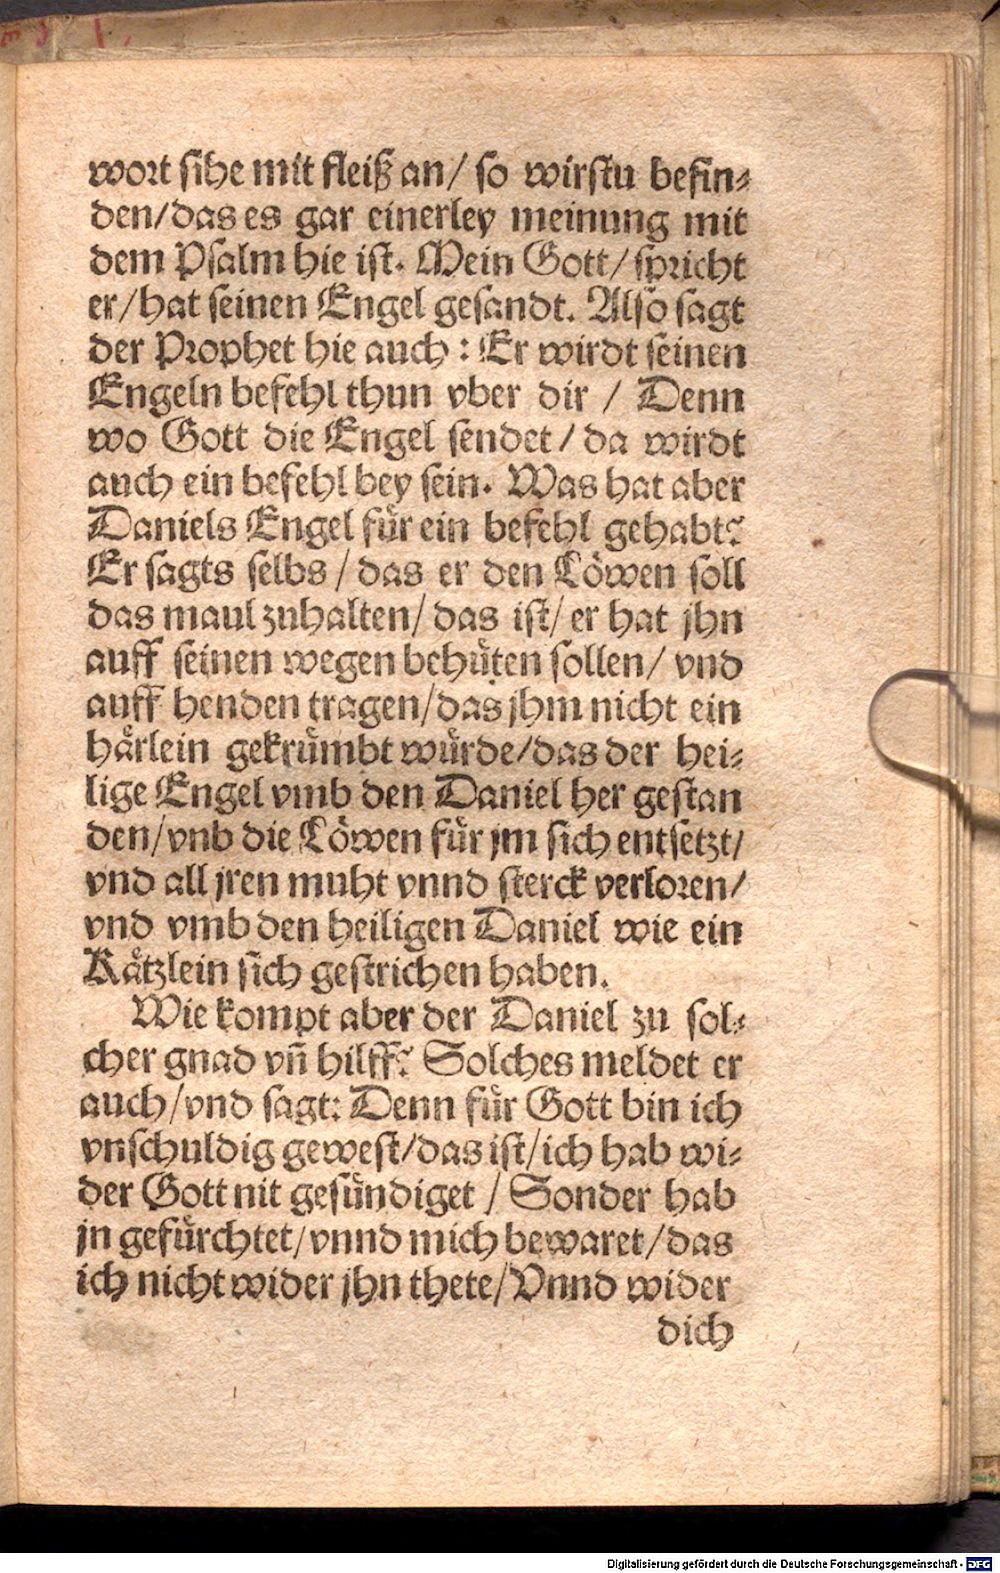 wort sihe mit fleiß an/ so wirstu befin⸗
den/das es gar einerley meinung mit
dem Psalm hie ist. Mein Gott/ spricht
er/hat seinen Engel gesandt. Also sagt
der Prophet hie auch: Er wirdt seinen
Engeln befehl thun vber dir / Denn
wo Gott die Engel sendet/ da wirdt
auch ein befehl bey sein. Was hat aber
Daniels Engel für ein befehl gehabt?
Er sagts selbs / das er den Löwen soll
das maul zuhalten/ das ist/ er hat jhn
auff seinen wegen behüten sollen/ vnd
auff henden tragen/das jhm nicht ein
härlein gekrümbt würde/das der hei⸗
lige Engel vmb den Daniel her gestan
den/vnb die Löwen für jm sich entsetzt/
vnd all jren muht vnnd sterck verloren/
vnd vmb den heiligen Daniel wie ein
Kätzlein sich gestrichen haben.
Wie kompt aber der Daniel zu sol⸗
cher gnad vñ hilff? Solches meldet er
auch/vnd sagt: Denn für Gott bin ich
vnschuldig gewest/das ist/ich hab wi⸗
der Gott nit gesündiget / Sonder hab
jn gefürchtet/vnnd mich bewaret/das
ich nicht wider jhn thete/Vnnd wider
dich
Digitalisierung gefördert durch die Deutsche Forschungsgemeinschaft - DFG